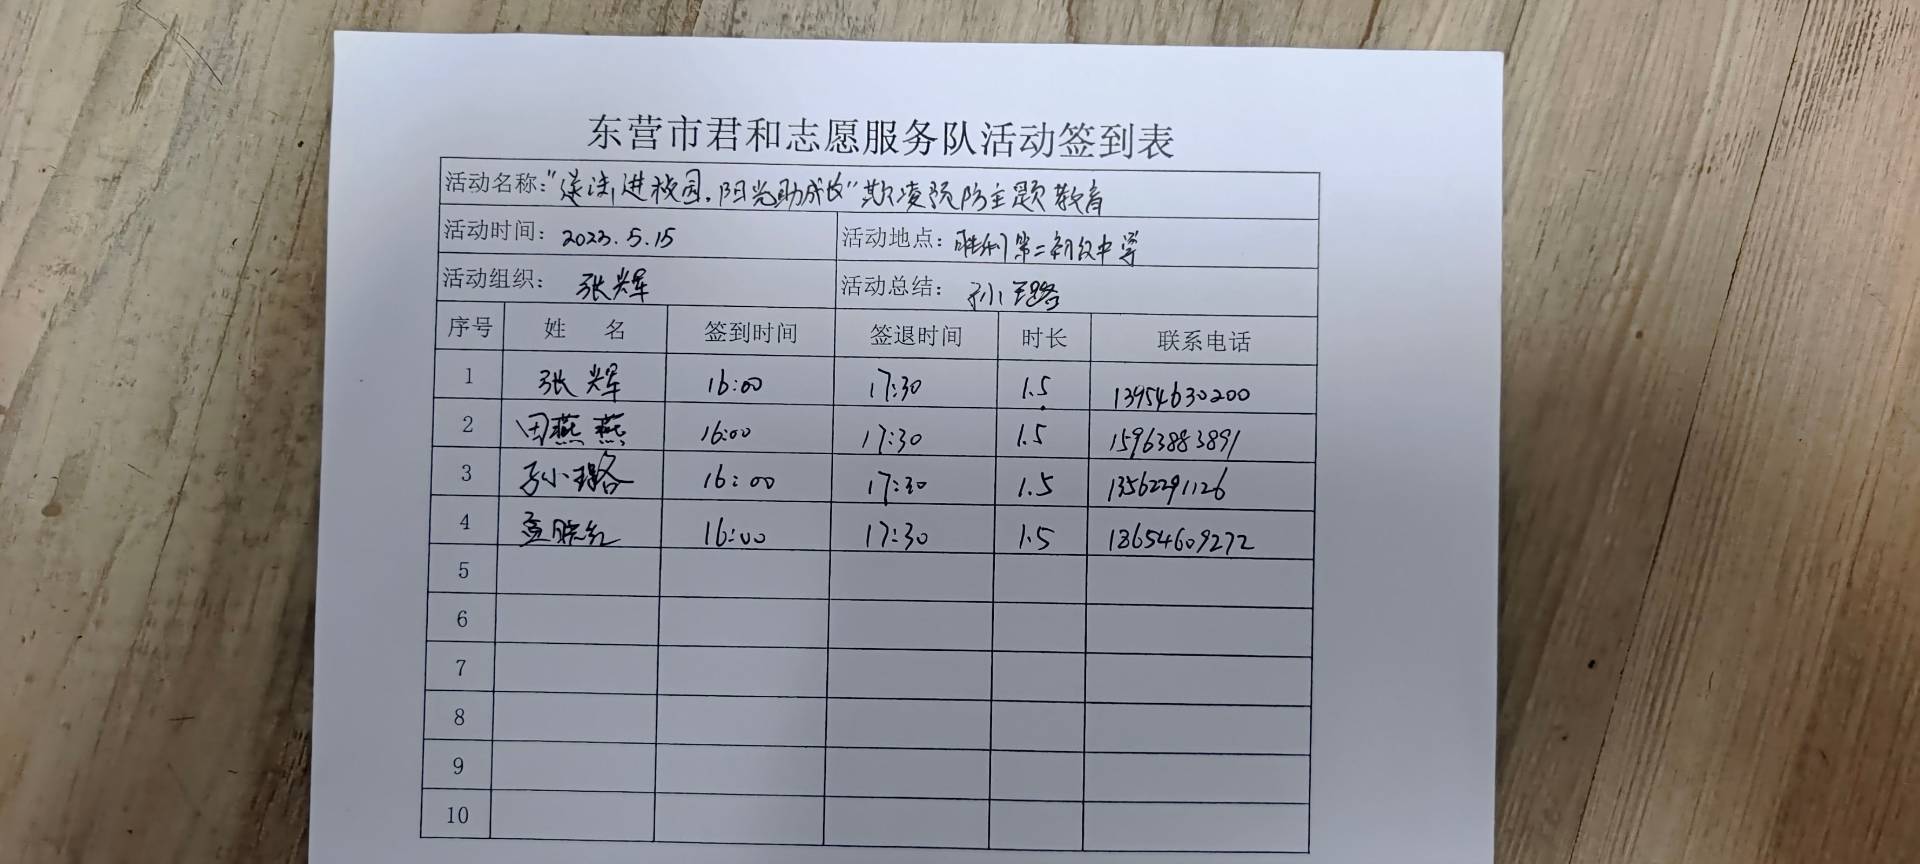 东营市君和志愿服务队活动签到表
活动名称:“送法进校园.阳光助成长”欺凌预防主题教育
活动时间: 2023.5.15 活动地点: 胜利第二初级中学
活动组织: 张辉 活动总结: 孙小璐
序号 姓 名 签到时间 签退时间 时长 联系电话
1 张辉 16:00 17:30 1.5 13954630200
2 田燕燕 16:00 17:30 1.5 15963883891
3 孙小璐 16:00 17:30 1.5 13562291126
4 孟晓红 16:00 17:30 1.5 13654609272
5
6
7
8
9
10